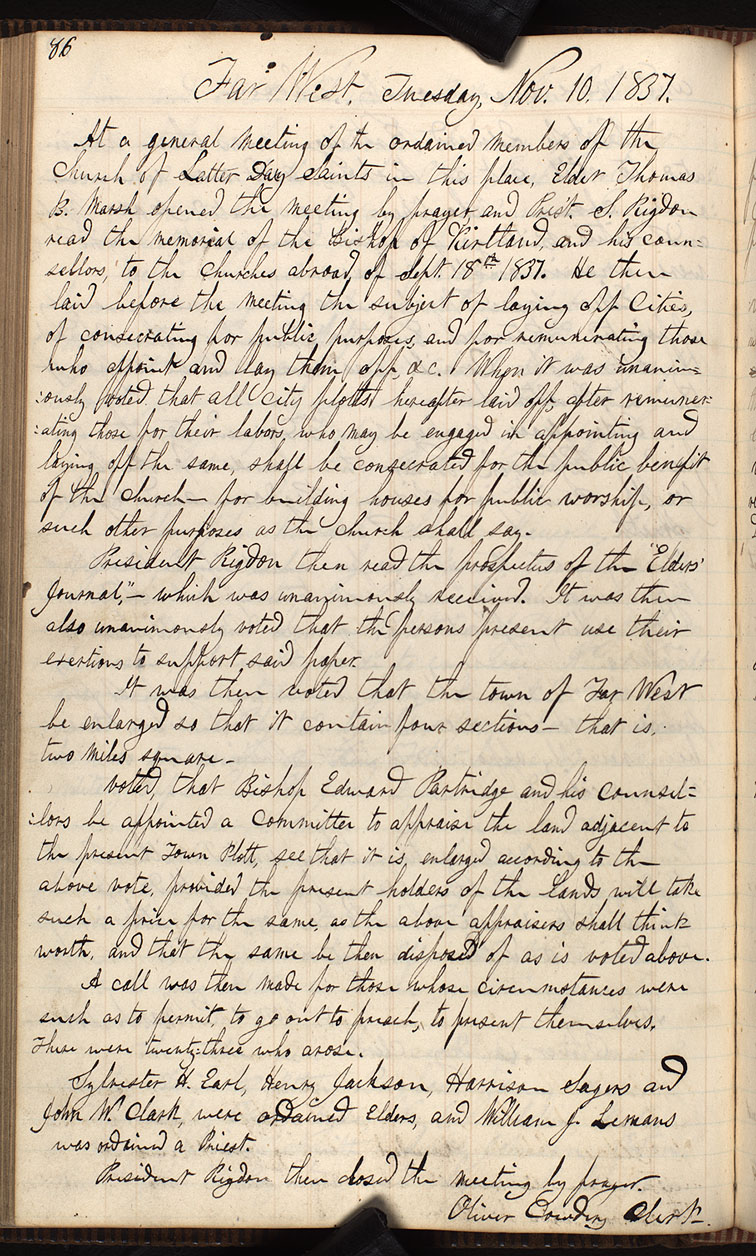 86
Far West. Tuesday, Nov. 10. 1837.
At a general meeting of the ordained members of the
Church of Latter Day Saints in this place, Elder Thomas
B. Marsh opened the meeting by prayer and Prest. S. Rigdon
read the memorial of the Bishop of Kirtland, and his coun=
sellors, to the churches abroad, of Sept. 18th 1837. He then
laid before the meeting the subject of laying off Cities,
of consecrating for public purposes, and for remunerating those
who appoint and lay them off, &c. When it was unanim=
:ously voted that all city plotts hereafter laid off, after remuner=
:ating those for their labors, who may be engaged in appointing and
laying off the same, shall be consecrated for the public benefit
of the church— for building houses for public worship, or
such other purposes as the church shall say.
President Rigdon then read the prospectus of the "Elders'
Journal,"— which was unanimously received. It was then
also unanimously voted that the persons present use their
exertions to support said paper.
It was then voted that the town of Far West
be enlarged so that it contain four sections— that is,
two miles square—
Voted, that Bishop Edward Partridge and his counsel=
:lors be appointed a Committee to appraise the land adjacent to
the present Town Plott, see that it is, enlarged according to the
above vote, provided the present holders of the Lands will take
such a price for the same, as the above appraisers shall think
worth, and that the same be then disposed of as is voted above.
A call was then made for those whose circumstances were
such as to permit, to go out to preach, to present themselves.
There were twenty=three who arose.
Sylvester H. Earl, Henry Jackson, Harrison Sagers and
John W. Clark, were ordained Elders, and William J. Lemans
was ordained a Priest.
President Rigdon then closed the meeting by prayer.
Oliver Cowdery Clerk